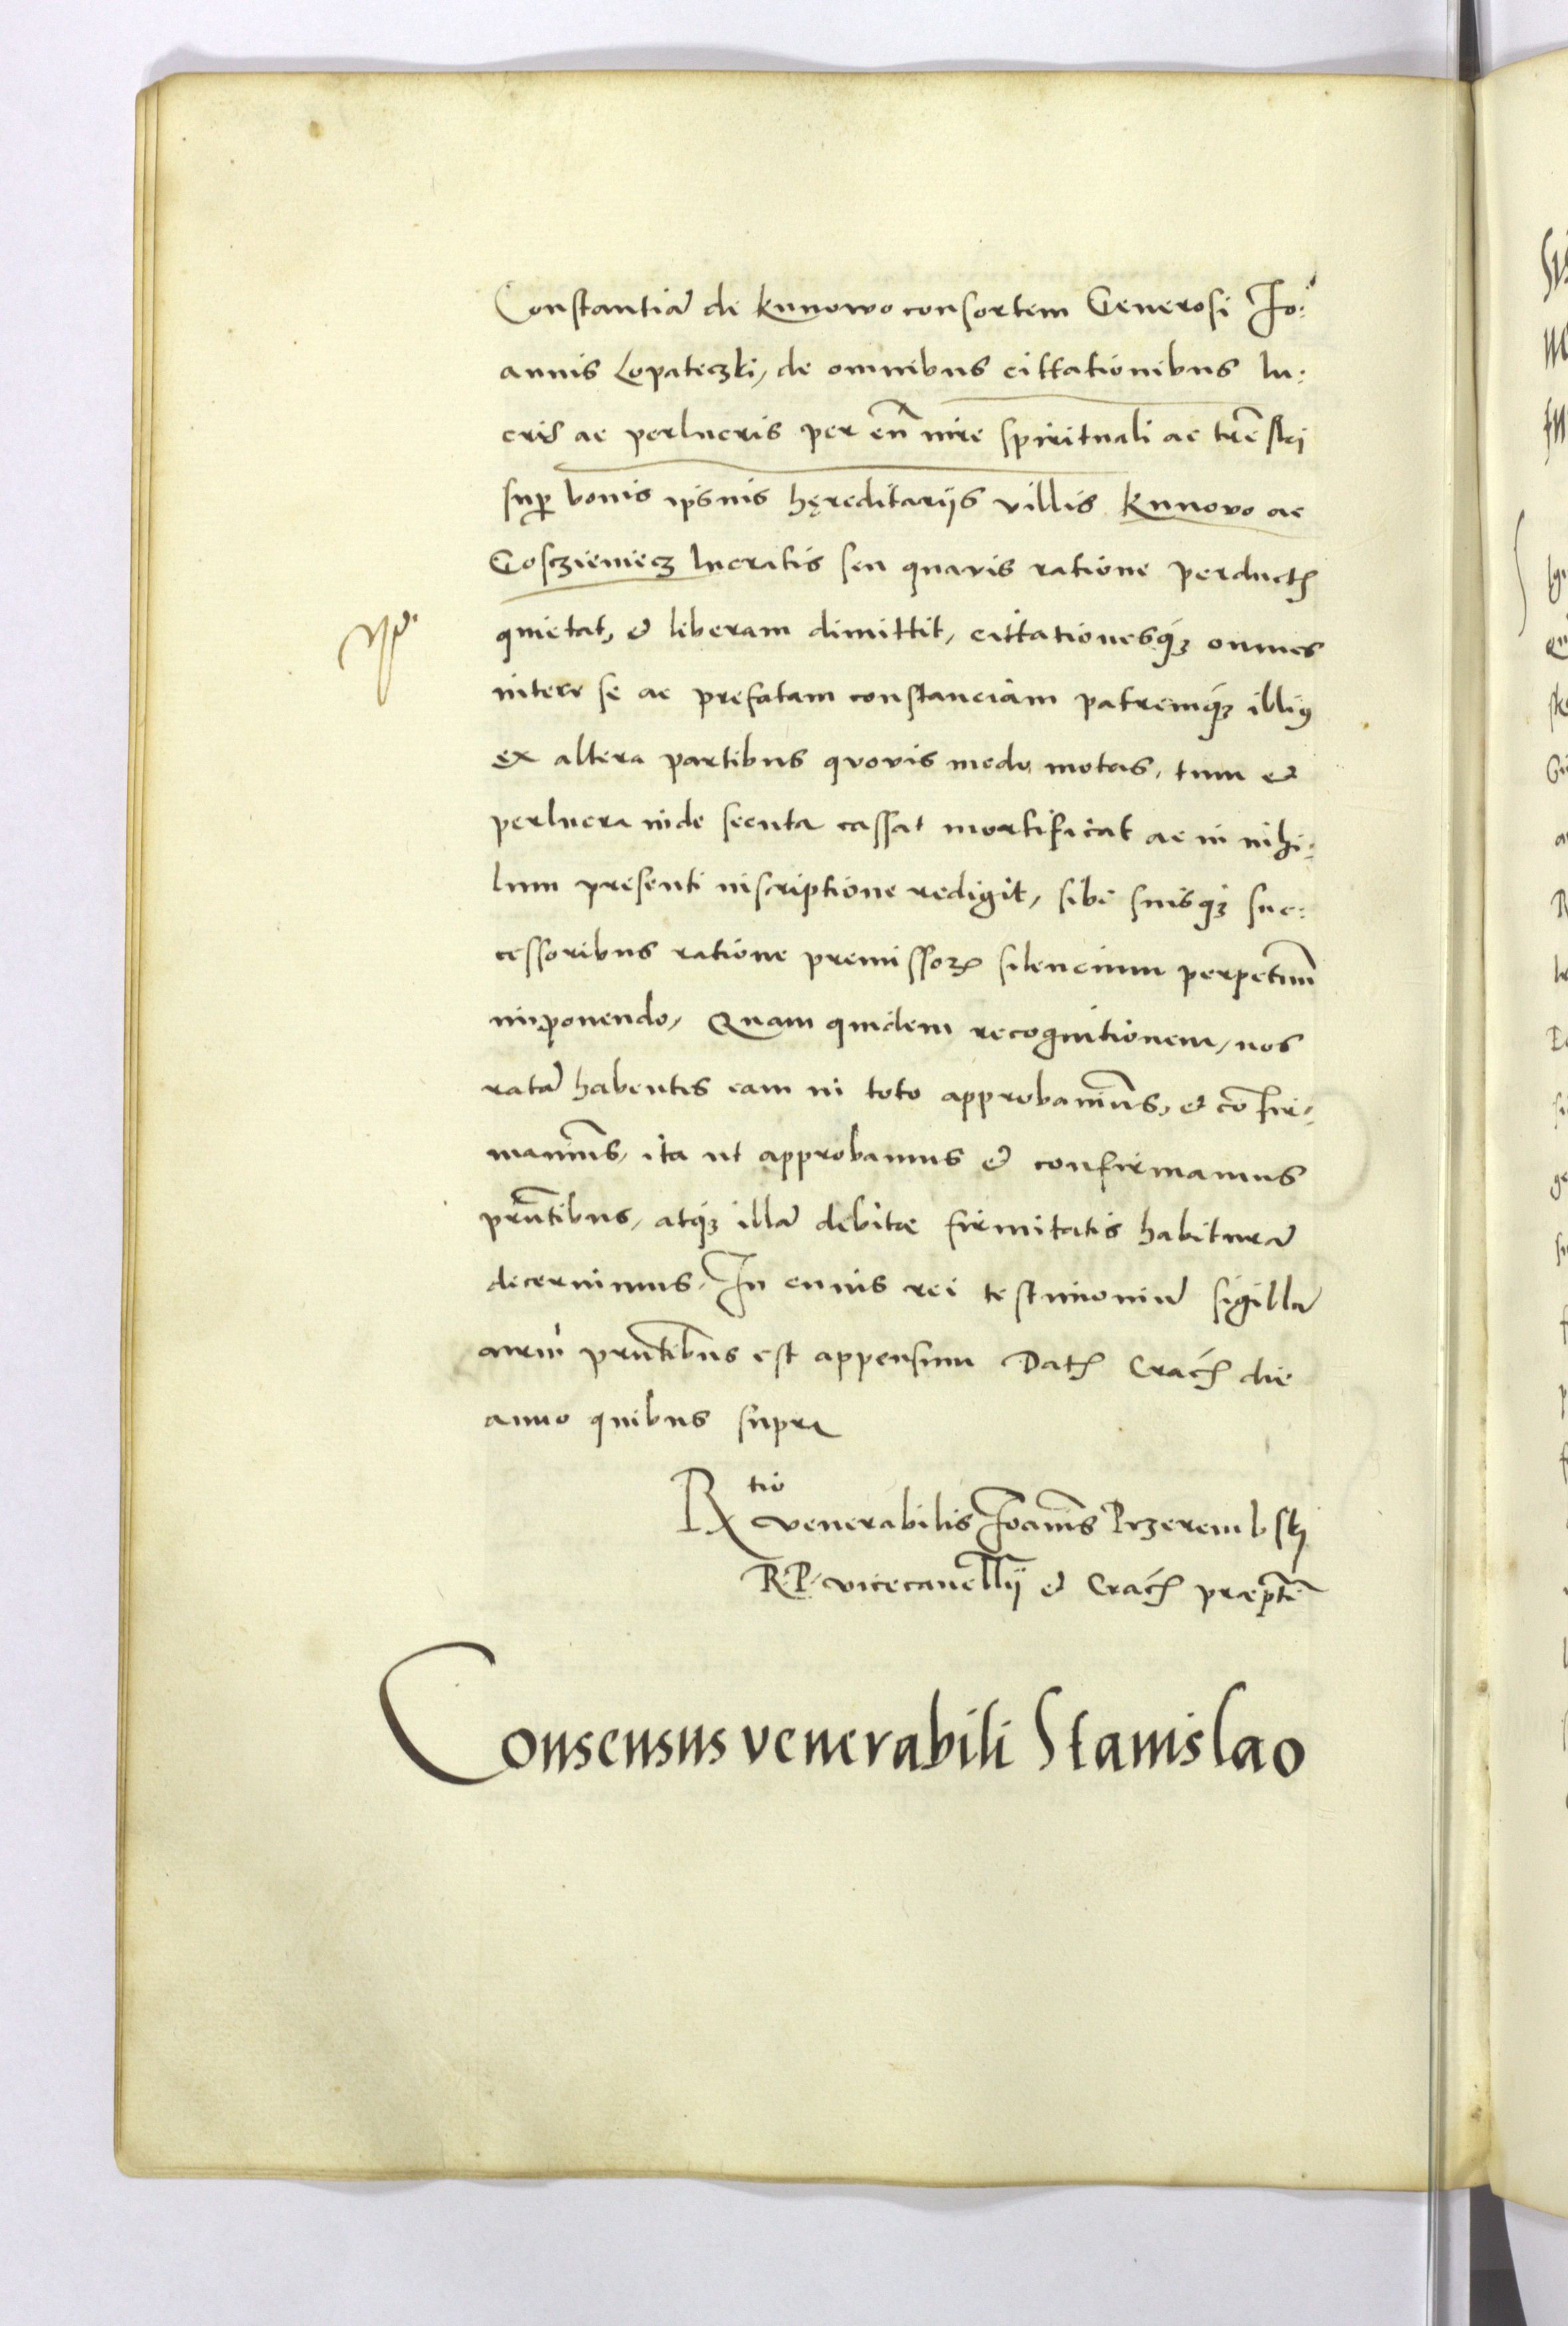 Constantiã de Kunowo consortem Generosi Jo:
annis Lopateczki, de omnibus cittationibus lu:
cris ac perlucris per eñ iure spirituali ac trẽstri
sup bonis ipsius hęreditarijs villis Kunovo ac
Gosczieniecz lucratis seu quavis ratione perduct
quietat, et liberam dimittit, cittationesq; omnes
inter se ac prefatam constanciam patremq; illius
ex altera partibus quovis modo motas, tum et
perlucra inde secuta cassat mortificat ac in nihi:
lum presenti inscriptione redigit, sibi suisq; suc:
cessoribus ratione premissoꝝ silencium perpetuũ
imponendo, Quam quidem recognitionem, nos
ratã habentes eam in toto approbamus, et cõfir-
mamus, ita ut approbamus et confirmamus
prñtibus, atq; illã debitae firmitatis habiturã
decernimus. In cuius rei testimoniũ sigillũ
nrm̃ prñtibus est appensum Dat Crac die
anno quibus supra
Rtio
venerabilis Joannis Przerembski
R. P. vicecancellij et Crac praeptĩ
Consensus venerabili Stanislao